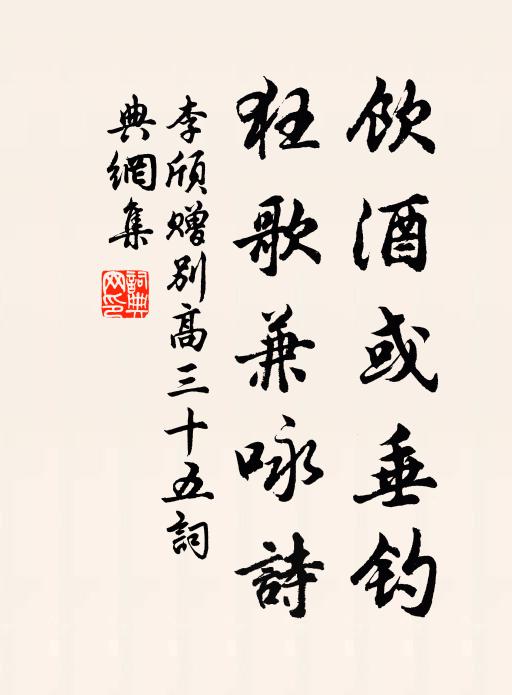 飲酒或垂钓
狂歌兼咏詩
李頎赠别高三十五詞
典網集
詞典網印